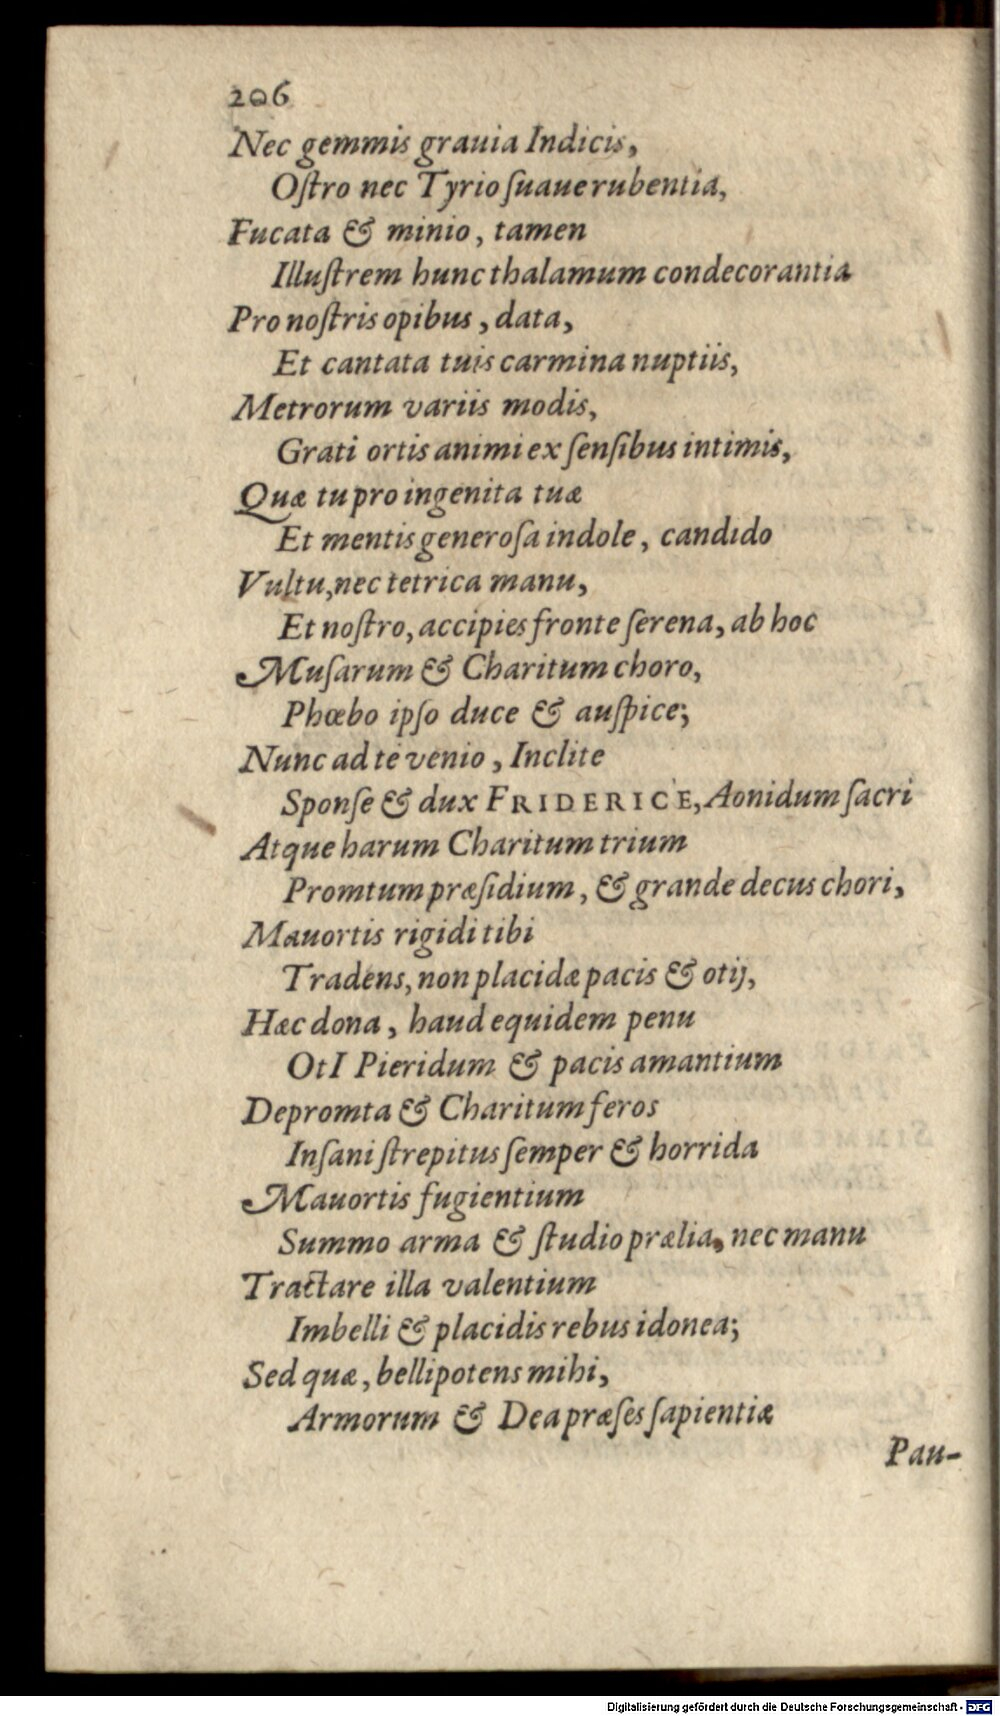 206
Nec gemmis grauia Indicis,
Oſtro nec Tyrio ſuaue rubentia,
Fucata & minio, tamen
Illuſtrem hunc thalamum condecorantia
Pro noſtris opibus, data,
Et cantata tuis carmina nuptiis,
Metrorum variis modis,
Grati ortis animi ex ſenſibus intimis,
Quæ tu pro ingenita tuæ
Et mentis generoſa indole, candido
Vultu, nec tetrica manu,
Et noſtro, accipies fronte ſerena, ab hoc
Muſarum & Charitum choro,
Phœbo ipſo duce & auſpice;
Nunc ad te venio, Inclite
Sponſe & dux FRIDERICE, Aonidum ſacri
Atque harum Charitum trium
Promtum præſidium, & grande decus chori,
Mauortis rigidi tibi
Tradens, non placidæ pacis & otij,
Hæc dona, haud equidem penu
OtI Pieridum & pacis amantium
Depromta & Charitum feros
Inſani ſtrepitus ſemper & horrida
Mauortis fugientium
Summo arma & ſtudio prælia, nec manu
Tractare illa valentium
Imbelli & placidis rebus idonea;
Sed quæ, bellipotens mihi,
Armorum & Dea præſes ſapientiæ
Pau-
Digitalisierung gefördert durch die Deutsche Forschungsgemeinschaft - DFG